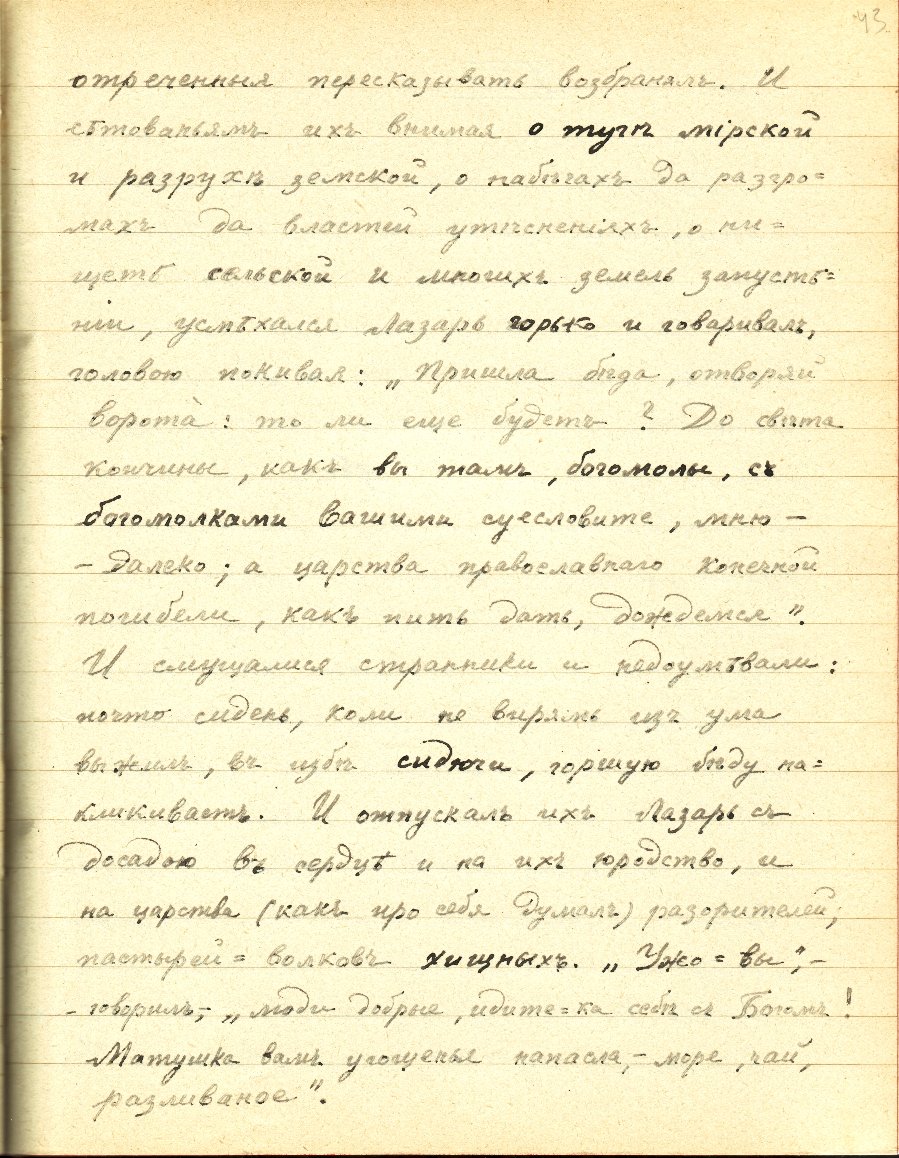 43
отреченныя пересказывать возбранялъ. И
сѣтованьямъ ихъ внимая о тугѣ мірской
и разрухѣ земской, о набѣгахъ да разгро=
махъ да властей утѣсненіяхъ, о ни=
щетѣ сельской и многихъ земель запустѣ=
ніи, усмѣхался Лазарь горько и говаривалъ,
головою покивая: „Пришла бѣда, отворяй
ворота̀: то ли еще будетъ? До свѣта
кончины, какъ вы тамъ, богомолы, съ
богомолками вашими суесловите, мню –
– далеко; а царства православнаго конечной
погибели, какъ пить дать, дождемся".
И смущалися странники и недоумѣвали:
почто сидень, коли не вирямь изъ ума
выжилъ, въ избѣ сидючи, горшую бѣду на=
кликиваетъ. И отпускалъ ихъ Лазарь съ
досадою въ сердцѣ и на ихъ юродство, и
на царства (какъ про себя думалъ) разорителей,
пастырей = волковъ хищныхъ. „Ужо = вы", –
– говорилъ, – „люди добрые, идите = ка себѣ съ Богомъ!
Матушка вамъ угощенья напасла, – море, чай,
разливаное".